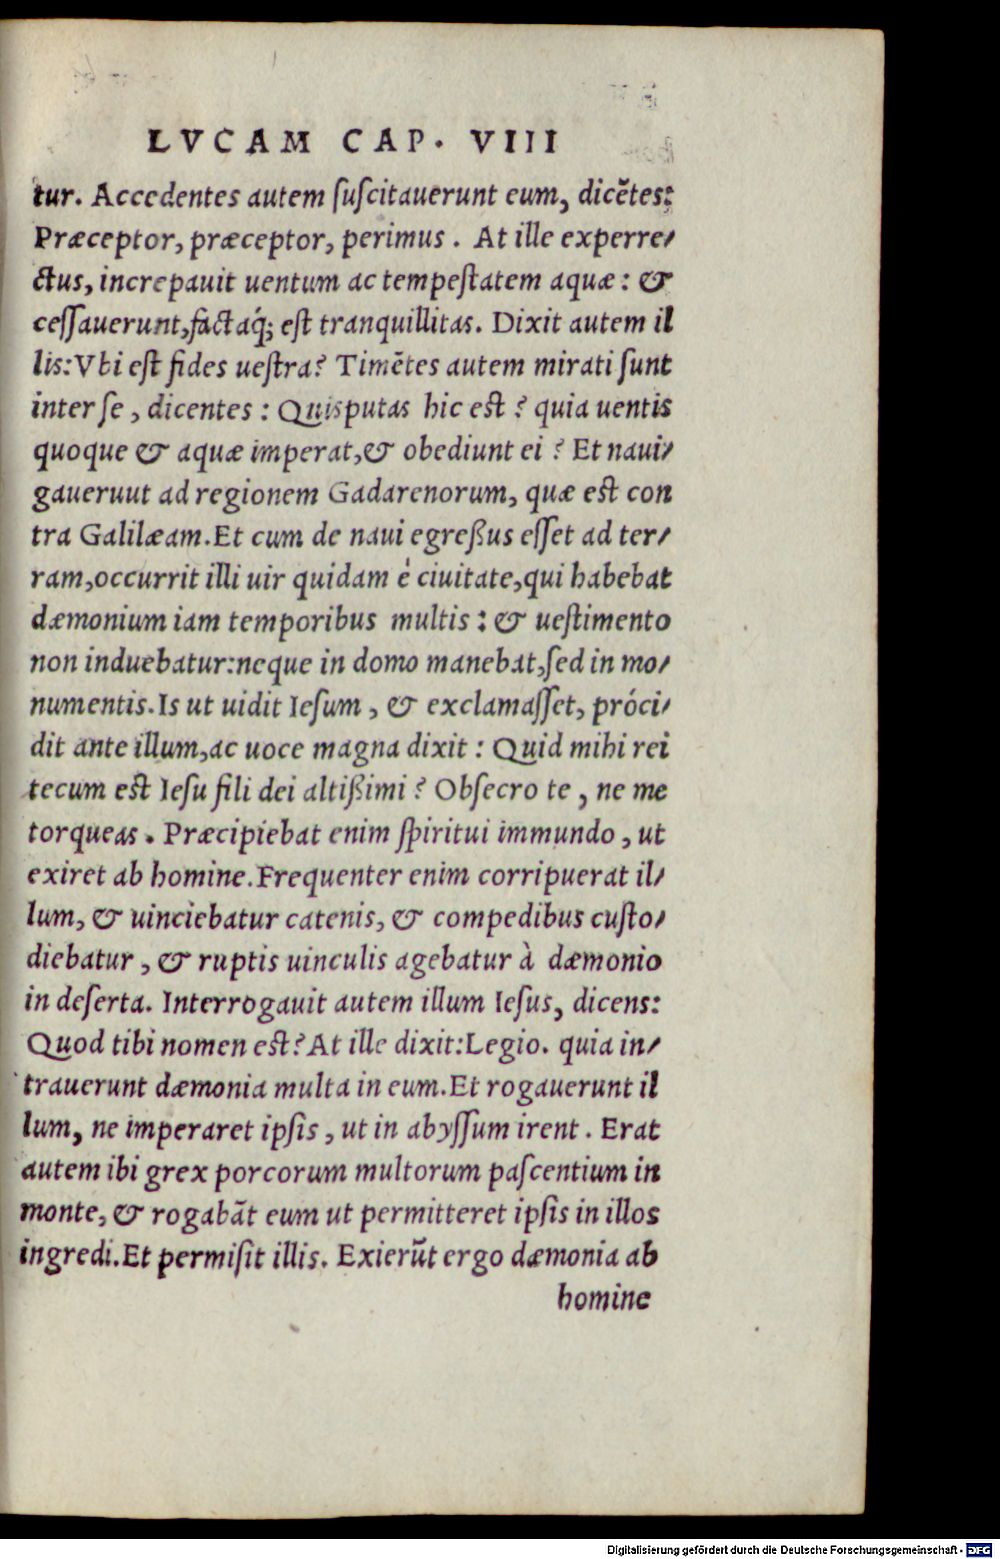 LVCAM CAP. VIII
tur. Accedentes autem ſuſcitauerunt eum, dicẽtes:
Præceptor, præceptor, perimus. At ille experre⸗
ctus, increpauit uentum ac tempeſtatem aquæ: &
ceſſauerunt, factaq́; eſt tranquillitas. Dixit autem il
lis: Vbi eſt fides ueſtra? Timẽtes autem mirati ſunt
inter ſe, dicentes: Quis putas hic est? quia uentis
quoque & aquæ imperat, & obediunt ei? Et naui⸗
gaueruut ad regionem Gadarenorum, quæ est con
tra Galilæam. Et cum de naui egreßus eſſet ad ter⸗
ram, occurrit illi uir quidam è ciuitate, qui habebat
dæmonium iam temporibus multis: & ueſtimento
non induebatur: neque in domo manebat, ſed in mo⸗
numentis. Is ut uidit Ieſum, & exclamaſſet, próci⸗
dit ante illum, ac uoce magna dixit: Quid mihi rei
tecum est Ieſu fili dei altißimi? Obſecro te, ne me
torqueas. Præcipiebat enim ſpiritui immundo, ut
exiret ab homine. Frequenter enim corripuerat il⸗
lum, & uinciebatur catenis, & compedibus cuſto⸗
diebatur, & ruptis uinculis agebatur à dæmonio
in deſerta. Interrogauit autem illum Ieſus, dicens:
Quod tibi nomen est? At ille dixit: Legio. quia in⸗
trauerunt dæmonia multa in eum. Et rogauerunt il
lum, ne imperaret ipſis, ut in abyſſum irent. Erat
autem ibi grex porcorum multorum paſcentium in
monte, & rogabãt eum ut permitteret ipſis in illos
ingredi. Et permiſit illis. Exierũt ergo dæmonia ab
homine
Digitalisierung gefördert durch die Deutsche Forschungsgemeinschaft - DFG